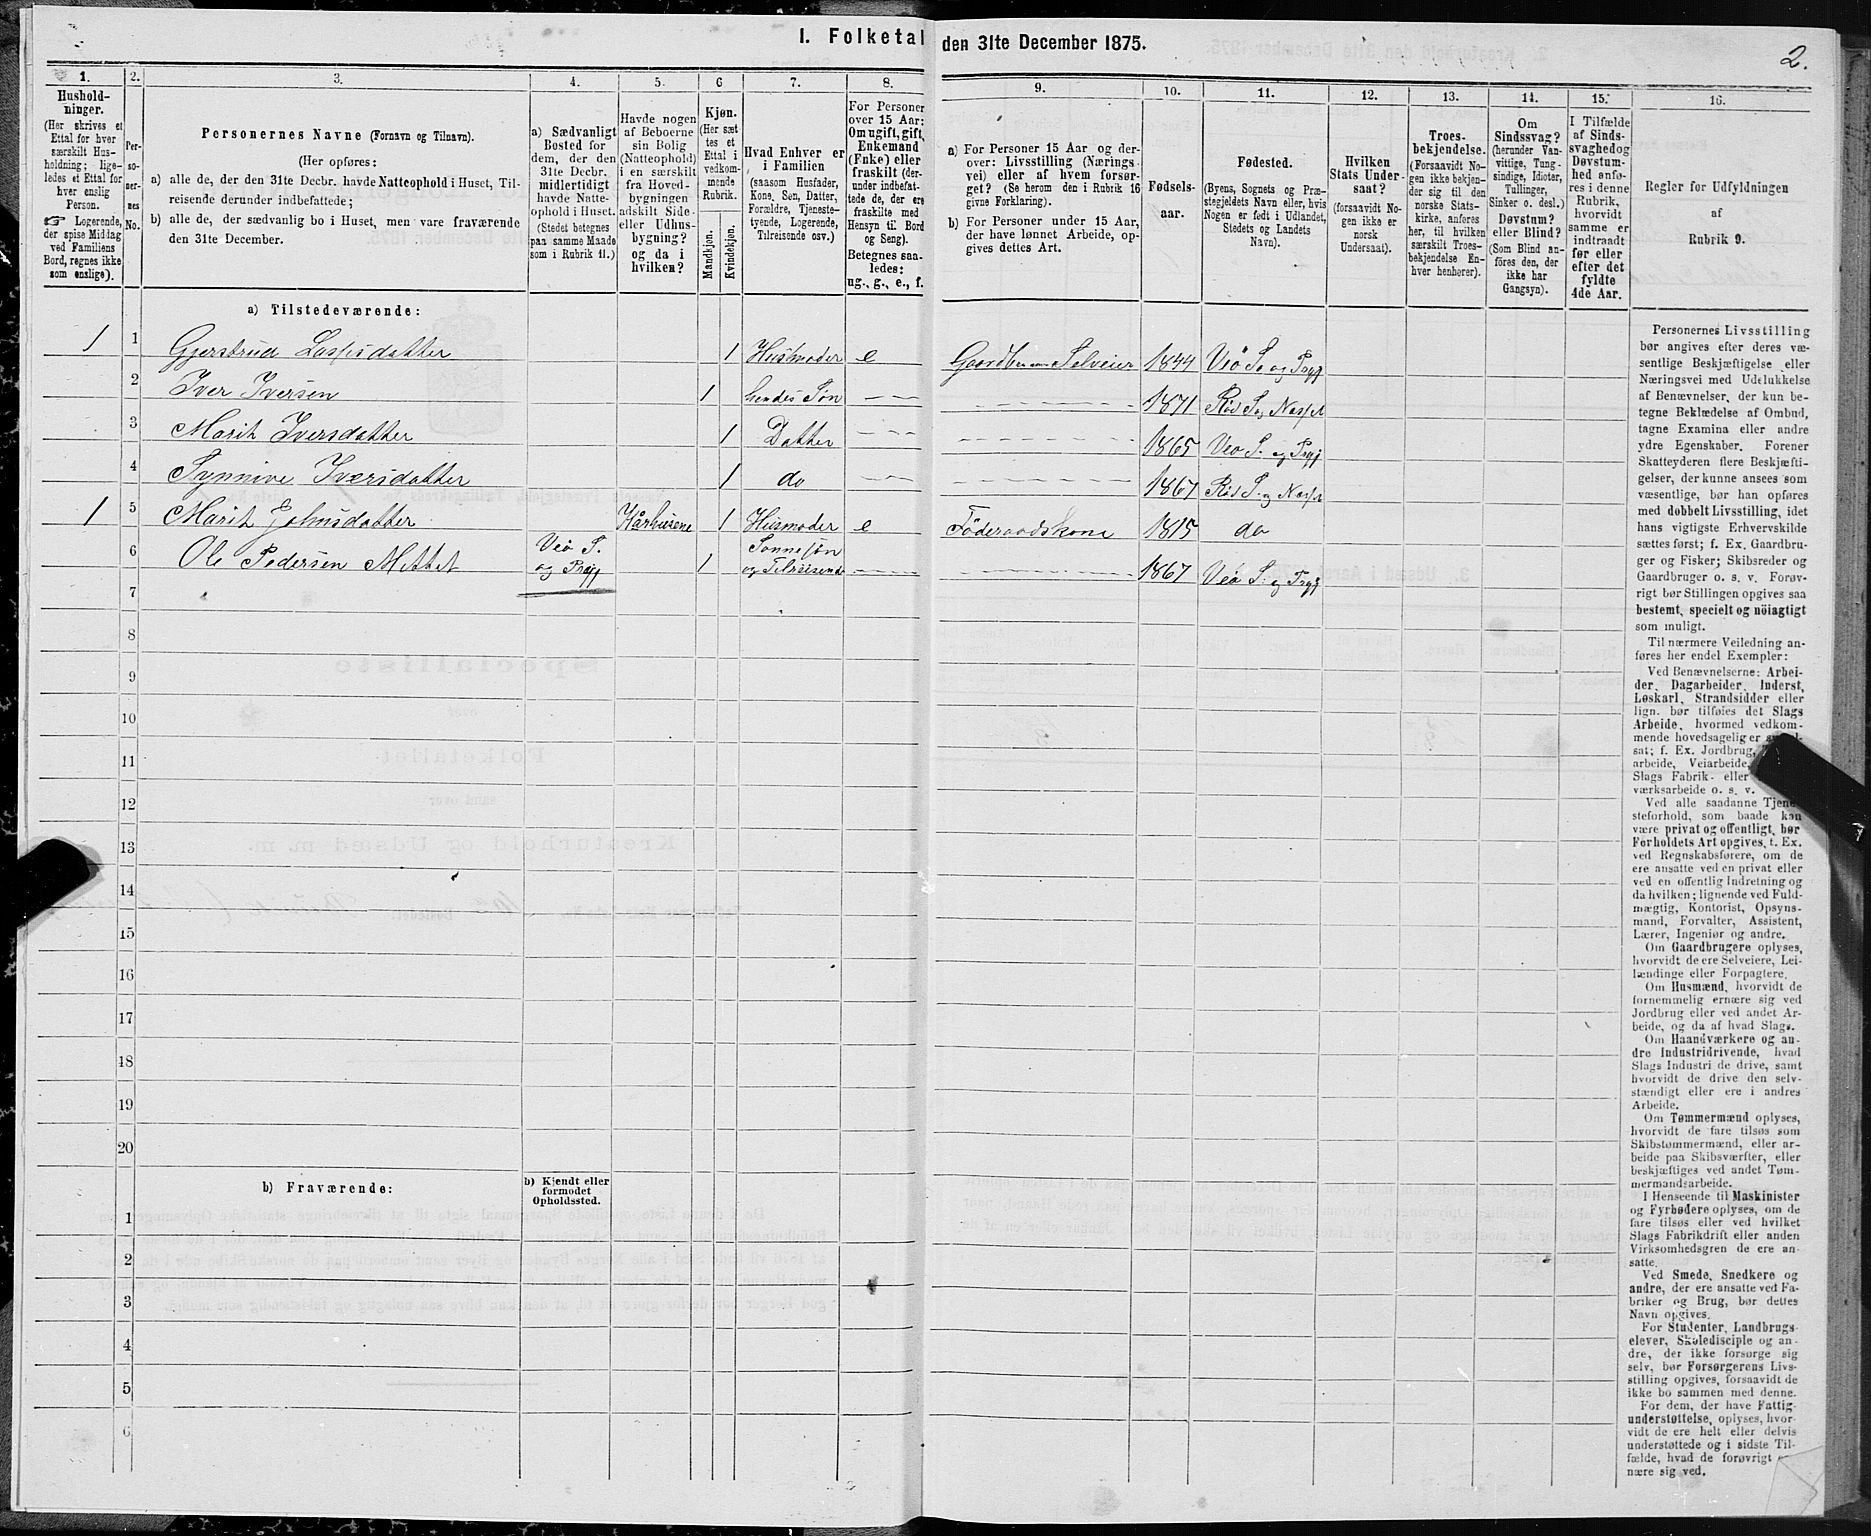 I. Folketal den 31te December 1875.
2.
1. 2. 3. 4. 5. 6 7. 8. 9. 10. 11. 12. 13. 14. 15. 16.
Hushold-
ninger.
(Her skrives et
Ettal for hver
særskilt Hus-
holdning; lige-
ledes et Ettal for
hver enslig
Person.
Logerende,
der spise Middag
ved Familiens
Bord, regnes ikke
som enslige).
Per-
so-
ner-
nes
No.
Personernes Navne (Fornavn og Tilnavn).
(Her opføres:
a) alle de, der den 31te Decbr. havde Natteophold i Huset, Til-
reisende derunder indbefattede;
b) alle de, der sædvanlig bo i Huset, men vare fraværende
den 31te December.
a) Sædvanligt
Bosted for
dem, der den
31te Decbr.
midlertidigt
havde Natte-
ophold i Huset.
(Stedet betegnes
paa samme Maade
som i Rubrik 11.)
Havde nogen
af Beboerne
sin Bolig
(Natteophold)
i en særskilt
fra Hoved-
bygningen
adskilt Side-
eller Udhus-
bygning?
og da i
hvilken?
Kjøn.
(Her sæt-
tes et
Ettal i
vedkom-
mende
Rubrik.
Mandkjøn.
Kvindekjøn.
Hvad Enhver er
i Familien
(saasom Husfader,
Kone, Søn, Datter,
Forældre, Tjeneste-
tyende, Logerende,
Tilreisende osv.)
For Personer
over 15 Aar:
Om ugift, gift,
Enkemand
(Enke) eller
fraskilt (der-
under indbefat-
tede de, der ere
fraskilte med
Hensyn til Bord
og Seng).
Betegnes saa-
ledes:
ug., g., e., f.
a) For Personer 15 Aar og der-
over: Livsstilling (Nærings-
vei) eller af hvem forsør-
get? (Se herom den i Rubrik 16
givne Forklaring).
b) For Personer under 15 Aar,
der have lønnet Arbeide, op-
gives dettes Art.
Fødsels-
aar.
Fødested.
(Byens, Sognets og Præ-
stegjeldets Navn eller, hvis
Nogen er født i Udlandet,
Stedets og Landets
Navn).
Hvilken
Stats Under-
saat?
(forsaavidt No-
gen ikke er
norsk
Undersaat).
Troes-
bekjendelse.
(Forsaavidt No-
gen ikke bekjen-
der sig til den
norske Stats-
kirke, anføres
her, til hvilken
særskilt Troes-
bekjendelse En-
hver henhører).
Om
Sindssvag?
(herunder Van-
vittige, Tung-
sindige, Idioter,
Tullinger,
Sinker o. desl.)
Døvstum?
eller Blind?
(Som Blind an-
føres den, der
ikke har
Gangsyn).
I Tilfælde
af Sinds-
svaghed og
Døvstum-
hed anfø-
res i denne
Rubrik,
hvorvidt
samme er
indtraadt
før eller
efter det
fyldte
4de Aar.
Regler for Udfyldningen
af
Rubrik 9.
a) Tilstedeværende:
1 1 Gjertrud Lassesdatter 1 Husmoder e Gaardbr Selveier 1844 Veö S. og Prgj
2 Iver Iversen 1 hendes Søn 1871 Röd S og Nesset
3 Marit Iversdatter 1 Datter 1865 Veö S. og Prgj
4 Synnive Iversdatter 1 do 1867 Röd S. og Nesset
1 5 Marit Johnsdatter Kårhusene 1 Husmoder e Föderaadskone 1815 do
6 Ole Pedersen Mittet Veö S. og Prgj 1 Sønnesøn og Tilreisende 1867 Veö S. og Prgj
7
8
9
10
11
12
13
14
15
16
17
18
19
20
b) Fraværende:
b) Kjendt eller
formodet
Opholdssted.
1
2
3
4
5
6
Personernes Livsstilling
bør angives efter deres væ-
sentlige Beskjæftigelse eller
Næringsvei med Udelukkelse
af Benævnelser, der kun be-
tegne Beklædelse af Ombud,
tagne Examina eller andre
ydre Egenskaber. Forener
Skatteyderen flere Beskjæfti-
gelser, der kunne ansees som
væsentlige, bør han opføres
med dobbelt Livsstilling, idet
hans vigtigste Erhvervskilde
sættes først; f. Ex. Gaardbru-
ger og Fisker; Skibsreder og
Gaardbruger o. s. v. Forøv-
rigt bør Stillingen opgives saa
bestemt, specielt og nöiagtigt
som muligt.
Til nærmere Veiledning an-
føres her endel Exempler:
Ved Benævnelserne: Arbei-
der, Dagarbeider, Inderst,
Løskarl, Strandsidder eller
lign. bør tilføies det Slags
Arbeide, hvormed vedkom-
mende hovedsagelig er syssel-
sat; f. Ex. Jordbrug,
arbeide, Veiarbeide,
Slags Fabrik- eller
værksarbeide o. s. v.
Ved alle saadanne Tjene-
steforhold, som baade kan
være privat og offentligt, bør
Forholdets Art opgives, t. Ex.
ved Regnskabsførere, om de
ere ansatte ved en privat eller
ved en offentlig Indretning og
da hvilken; lignende ved Fuld-
mægtig, Kontorist, Opsyns-
mand, Forvalter, Assistent,
Lærer, Ingeniør og andre.
Om Gaardbrugere oplyses,
hvorvidt de ere Selveiere, Lei-
lændinge eller Forpagtere.
Om Husmænd, hvorvidt de
fornemmelig ernære sig ved
Jordbrug eller ved andet Ar-
beide, og da af hvad Slags.
Om Haandværkere og an-
dre Industridrivende, hvad
Slags Industri de drive, samt
hvorvidt de drive den selv-
stændigt eller ere i andres
Arbeide.
Om Tømmermænd oplyses,
hvorvidt de fare tilsøs som
Skibstømmermænd, eller ar-
beide paa Skibsværfter, eller
beskjæftiges ved andet Tøm-
mermandsarbeide.
I Henseende til Maskinister
og Fyrbødere oplyses, om de
fare tilsøs eller ved hvilket
Slags Fabrikdrift eller anden
Virksomhedsgren de ere an-
satte.
Ved Smede, Snedkere og
andre, der ere ansatte ved Fa-
briker og Brug, bør dettes
Navn opgives.
For Studenter, Landbrugs-
elever, Skoledisciple og an-
dre, der ikke forsørge sig
selv, bør Forsørgerens Livs-
stilling opgives, forsaavidt de
ikke bo sammen med denne.
For dem, der have Fattig-
understøttelse, oplyses, hvor-
vidt de ere helt eller delvis
understøttede og i sidste Til-
fælde, hvad de forøvrigt
nære sig ved.